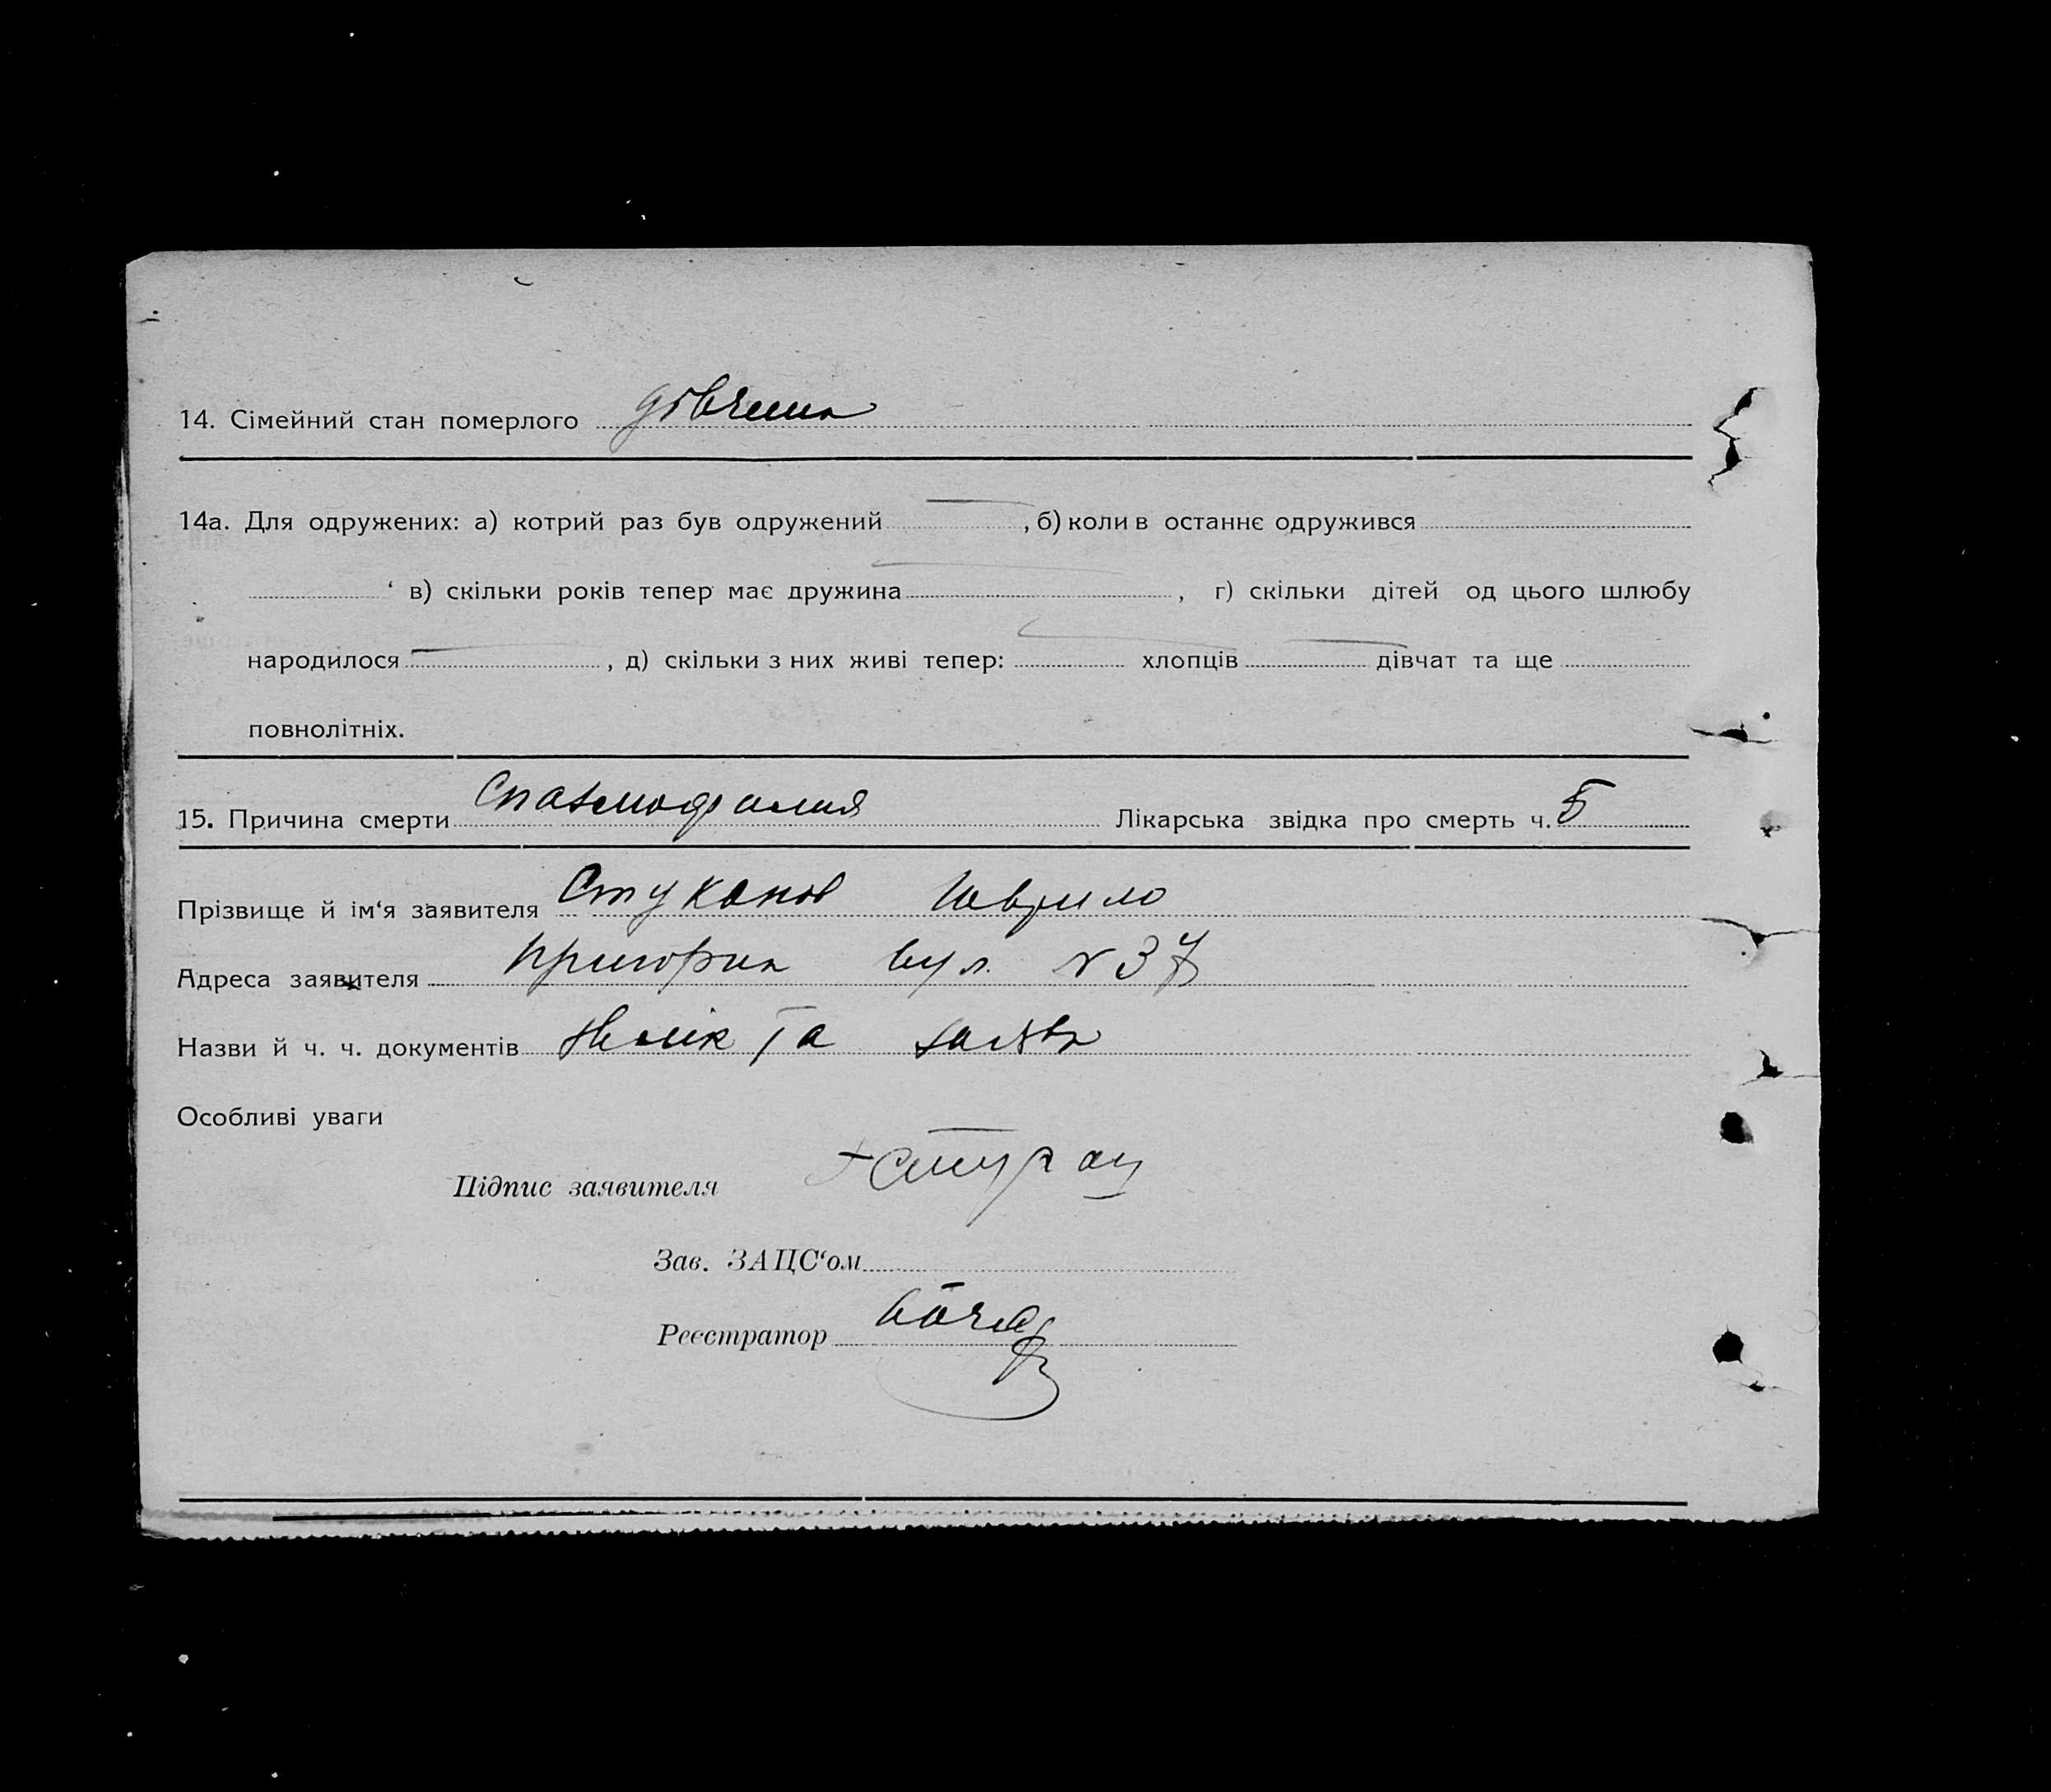 14. Сімейний стан померлого дівчина
14а. Для одружених: а) котрий раз був одружений , б) коли в останнє одружився
в) скільки років тепер має дружина , г) скільки дітей од цього шлюбу
народилося , д) скільки з них живі тепер: хлопців дівчат та ще
повнолітніх.
15. Причина смерти Спазмофилия Лікарська звідка про смерть ч. 5
Прізвище й ім‘я заявителя Стуканов Гаврило
Адреса заявителя вул. № 37
Назви й ч. ч. документів та заява
Особливі уваги
Підпис заявителя
Зав. ЗАЦС‘ом
Реєстратор